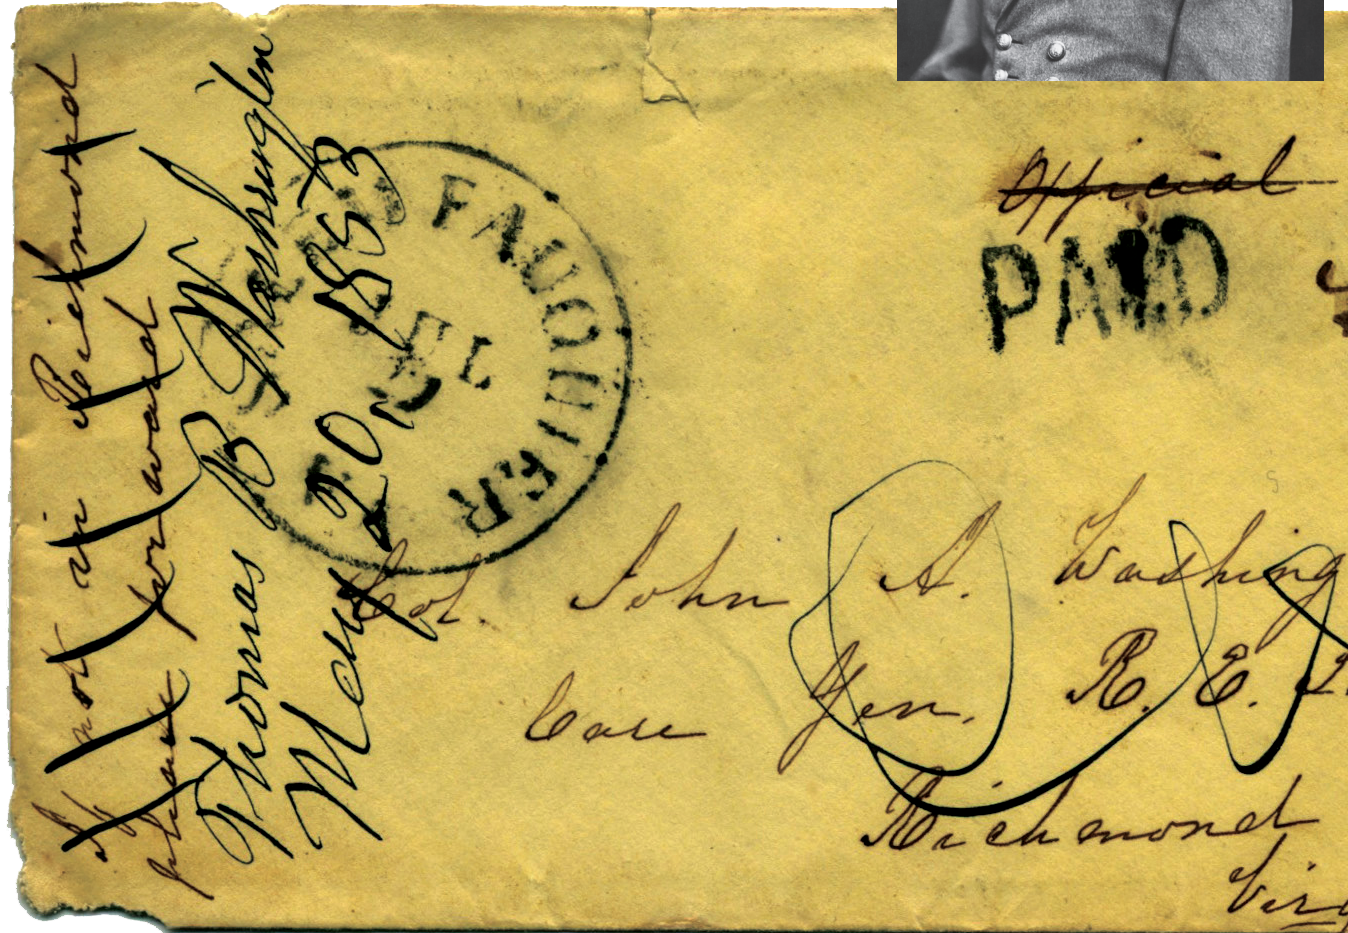 If not in Richmond
please forward
Thomas B Washington
May 20, 1883
FAUQUIER
Official
PAID
Col. John A. Washing
Care Gen. R. E.
Richmond
Virg